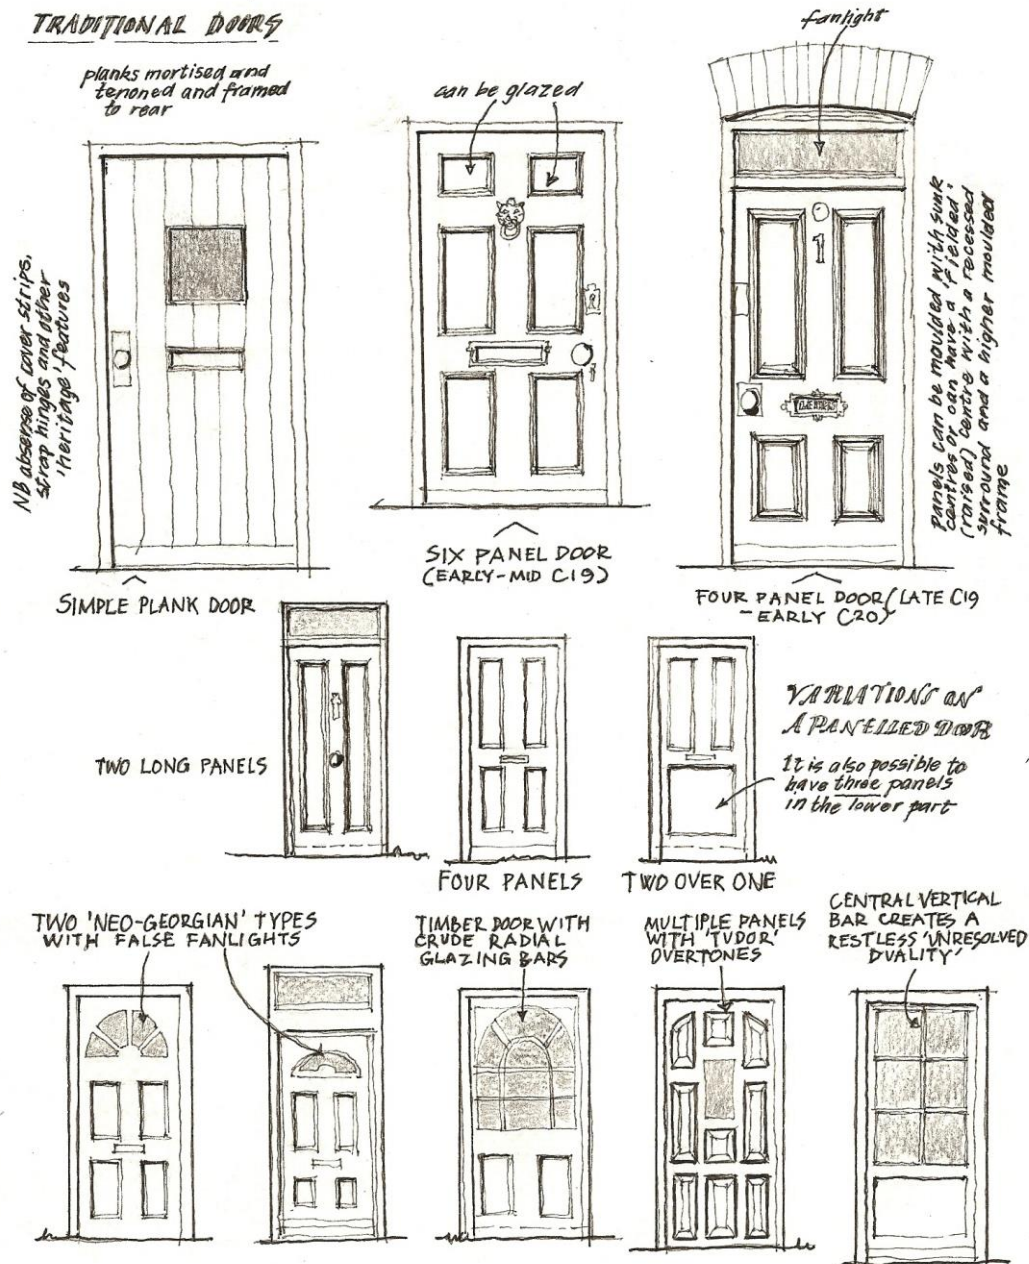 TRADITIONAL DOORS
planks mortised and
tenoned and framed
to rear
can be glazed
fanlight
NB absense of cover strips,
strap hinges and other
'heritage' features
1
LETTERS
Panels can be moulded with sunk
centres or can have a 'fielded'
(raised) centre with a recessed
surround and a higher moulded
frame
SIMPLE PLANK DOOR
SIX PANEL DOOR
(EARLY-MID C19)
FOUR PANEL DOOR (LATE C19
- EARLY C20)
TWO LONG PANELS
FOUR PANELS
TWO OVER ONE
VARIATIONS ON
A PANELLED DOOR
It is also possible to
have three panels
in the lower part
TWO 'NEO-GEORGIAN' TYPES
WITH FALSE FANLIGHTS
TIMBER DOOR WITH
CRUDE RADIAL
GLAZING BARS
MULTIPLE PANELS
WITH 'TUDOR'
OVERTONES
CENTRAL VERTICAL
BAR CREATES A
RESTLESS 'UNRESOLVED
DUALITY'